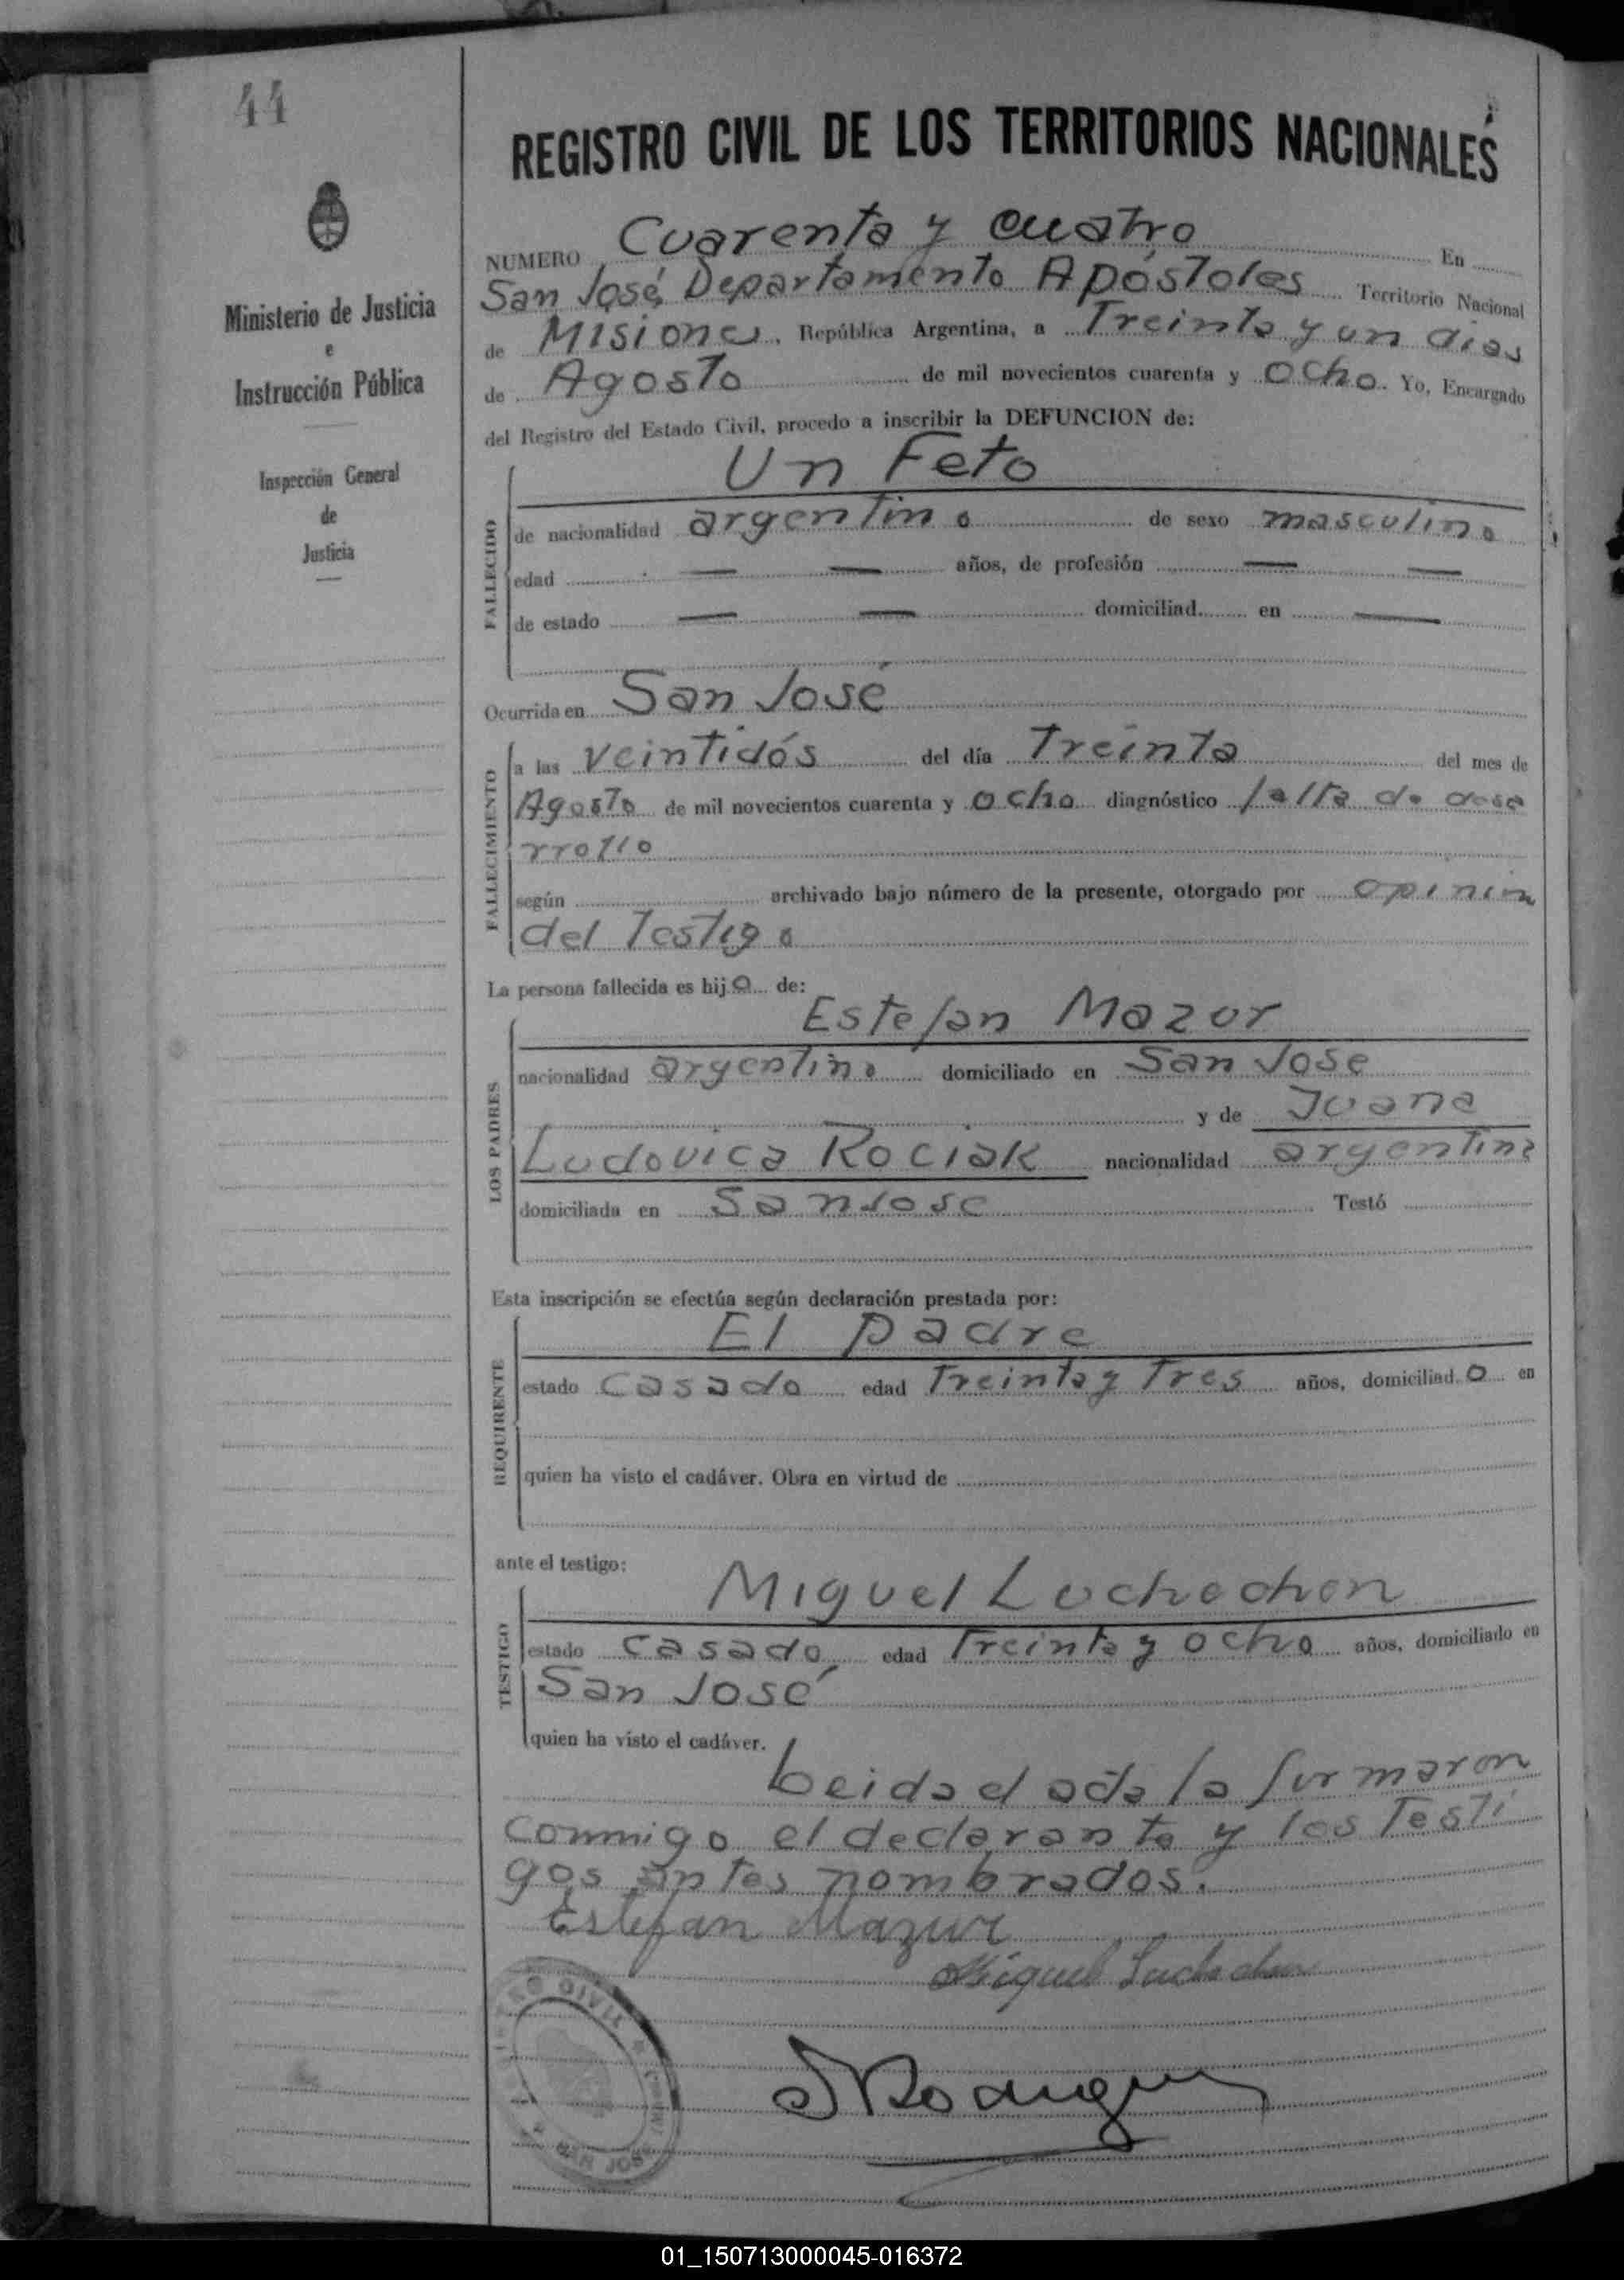 44
REGISTRO CIVIL DE LOS TERRITORIOS NACIONALES
Ministerio de Justicia
e
Instrucción Pública
Inspección General
de
Justicia
NUMERO Cuarenta y cuatro En
San José, Departamento Apóstoles Territorio Nacional
de Misiones, República Argentina, a Treinta y un dias
de Agosto de mil novecientos cuarenta y ocho. Yo, Encargado
del Registro del Estado Civil, procedo a inscribir la DEFUNCION de:
FALLECIDO
Un Feto
de nacionalidad argentino de sexo masculino
edad — — años, de profesión — —
de estado — — domiciliad en —
Ocurrida en San José
FALLECIMIENTO
a las veintidós del día Treinta del mes de
Agosto de mil novecientos cuarenta y ocho diagnóstico falta de desa
rrollo
según archivado bajo número de la presente, otorgado por opinión
del Testigo
La persona fallecida es hijo de:
LOS PADRES
Estefan Mazur
nacionalidad argentino domiciliado en San Jose
y de Juana
Ludovica Rociak nacionalidad argentina
domiciliada en San Jose Testó
Esta inscripción se efectúa según declaración prestada por:
REQUIRENTE
El padre
estado casado edad Treinta y Tres años, domiciliado en
quien ha visto el cadáver. Obra en virtud de
ante el testigo:
TESTIGO
Miguel Luchechen
estado casado edad Treinta y ocho años, domiciliado en
San José
quien ha visto el cadáver.
Leida el acta la firmaron
conmigo el declarante y los Testi
gos antes nombrados.
Estefan Mazur
Miguel
Rodriguez
CIVIL
SAN JOSE
01_150713000045-016372